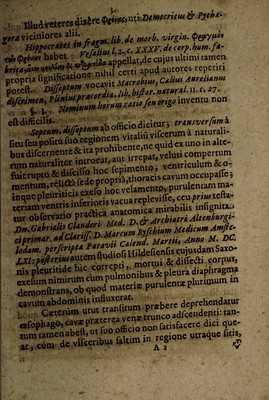 Illud veteres dixêre φρένας, uti Democritus & Pytha-
viciniores alii.
Hippocrates in fragm. lib. de morb. virgin.
habet. Vesalius l. 2. c. XXXV. de corp. hum. fa-
appellat, de cujus ultimi tamen
propria significatione nihil certi apud autores reperiri
potest. Disseptum vocavit Macrobius, Calius Aurelianus
discrimen, Plinius præcordia, lib. histor. natural. 11. c. 27.
Nominum horum ratio seu origo inventu non
est difficilis.
Septum, disseptum ab officio dicitur; transversum à
situ seu positu suo regionem vitalium viscerum à naturali-
bus discernente & ita prohibente, ne quid ex uno in alte-
rum naturaliter introeat, aut irrepat, veluti compertum
fuit rupto & discisso hoc sepimento, ventriculum & o-
mentum, relictâ sede propriâ, thoracis cavum occupasse;
inque pleuriticis exeso hoc velamento, purulentam ma-
teriam ventris inferioris vacua replevisse, ceu prius testa-
tur observatio practica anatomica mirabilis insignita
Dn. Gabrielis Clauderi Med. D. & Archiatri Altenburgi-
ci primar. ad Clariss. D. Marcum Eyschium Medicum Amste-
lodam. perscripta Patavii Calend. Martii, Anno M. DC.
LXI: posterius autem studiosi Hildesensis cujusdam Saxo-
nis pleuritide hîc correpti, mortui & dissecti corpus,
exesum nimirum cum pulmonibus & pleura diaphragma
demonstrans, ob quod materiæ purulentæ plurimum in
cavum abdominis influxerat.
Cæterùm utut transitum præbere deprehendatur
œsophago, cavæ præterea venæ trunco adscendenti: tan-
tum tamen abest, ut suo officio non satisfacere dici que-
at, cum de visceribus saltim in regione utraque sitis,
A 2